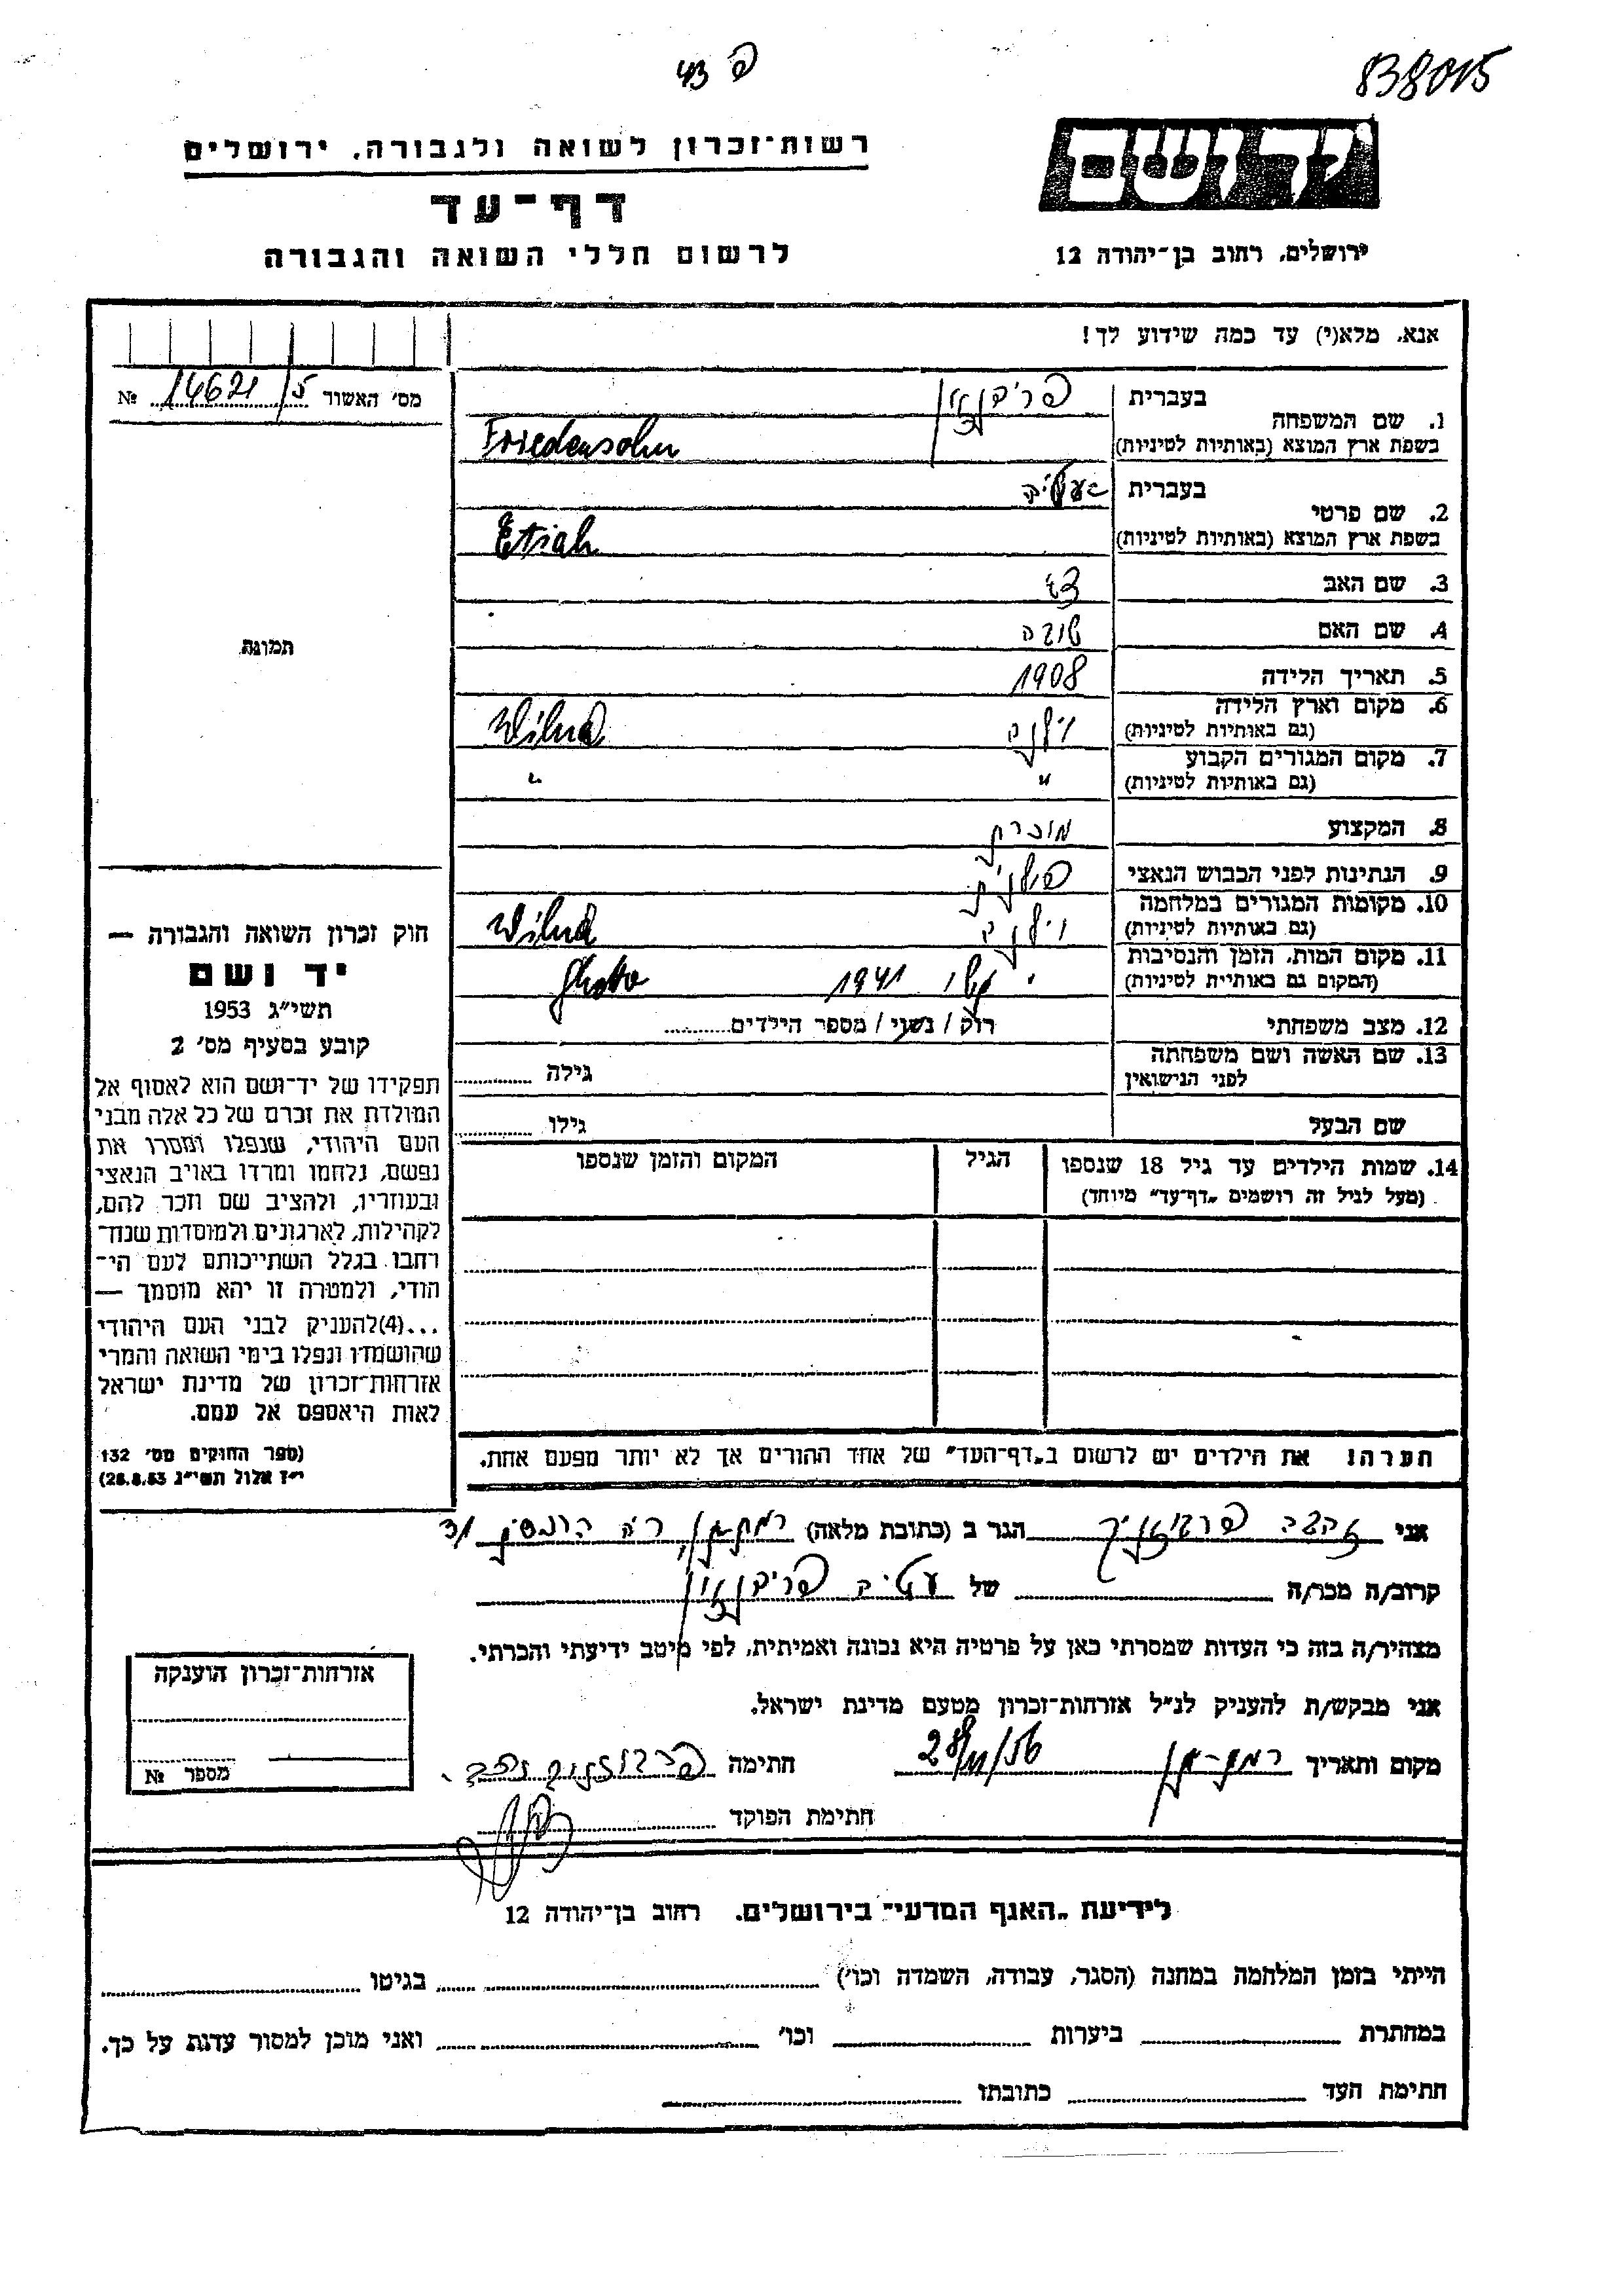 פ 43
838015
יד ושם
רשות־זכרון לשואה ולגבורה, ירושלים
דף־עד
לרשום חללי השואה והגבורה
ירושלים, רחוב בן־יהודה 12
אנא, מלא(י) עד כמה שידוע לך!
מס' האשור 14621/5 №
1. שם המשפחה
בעברית פרידנזון
בשפת ארץ המוצא (באותיות לטיניות) Friedensohn
2. שם פרטי
בעברית
בשפת ארץ המוצא (באותיות לטיניות) Etiah
3. שם האב
4. שם האם
5. תאריך הלידה 1908
6. מקום וארץ הלידה (גם באותיות לטיניות) וילנה Wilna
7. מקום המגורים הקבוע (גם באותיות לטיניות) " "
8. המקצוע מוכרת
9. הנתינות לפני הכבוש הנאצי פולנית
10. מקומות המגורים במלחמה (גם באותיות לטיניות) וילנה Wilna
11. מקום המות, הזמן והנסיבות (המקום גם באותיית לטיניות) 1941
12. מצב משפחתי רוק / נשוי / מספר הילדים
13. שם האשה ושם משפחתה לפני הנישואין גילה
שם הבעל גילו
14. שמות הילדים עד גיל 18 שנספו
(מעל לגיל זה רושמים „דף־עד" מיוחד)
הגיל
המקום והזמן שנספו
הערה! את הילדים יש לרשום ב„דף־העד" של אחד ההורים אך לא יותר מפעם אחת.
תמונה
חוק זכרון השואה והגבורה —
יד ושם
תשי"ג 1953
קובע בסעיף מס' 2
תפקידו של יד־ושם הוא לאסוף אל
המולדת את זכרם של כל אלה מבני
העם היהודי, שנפלו ומסרו את
נפשם, נלחמו ומרדו באויב הנאצי
ובעוזריו, ולהציב שם וזכר להם,
לקהילות, לארגונים ולמוסדות שנח־
רחבו בגלל השתייכותם לעם הי־
הודי, ולמטרה זו יהא מוסמך —
...(4)להעניק לבני העם היהודי
שהושמדו ונפלו בימי השואה והמרי
אזרחות־זכרון של מדינת ישראל
לאות היאספם אל עמם.
(ספר החוקים מס' 132
י"ז אלול תשי"ג 28.8.53)
אני הגר ב (כתובת מלאה) רמת־גן,
קרוב/ה מכר/ה של עטיה פרידנזון
מצהיר/ה בזה כי העדות שמסרתי כאן על פרטיה היא נכונה ואמיתית, לפי מיטב ידיעתי והכרתי.
אני מבקש/ת להעניק לנ"ל אזרחות־זכרון מטעם מדינת ישראל.
מקום ותאריך רמת־גן חתימה
חתימת הפוקד
אזרחות־זכרון הוענקה
מספר №
לידיעת „האגף המדעי" בירושלים, רחוב בן־יהודה 12
הייתי בזמן המלחמה במחנה (הסגר, עבודה, השמדה וכו') בגיטו
במחתרת ביערות וכו' ואני מוכן למסור עדות על כך.
חתימת העד כתובתו